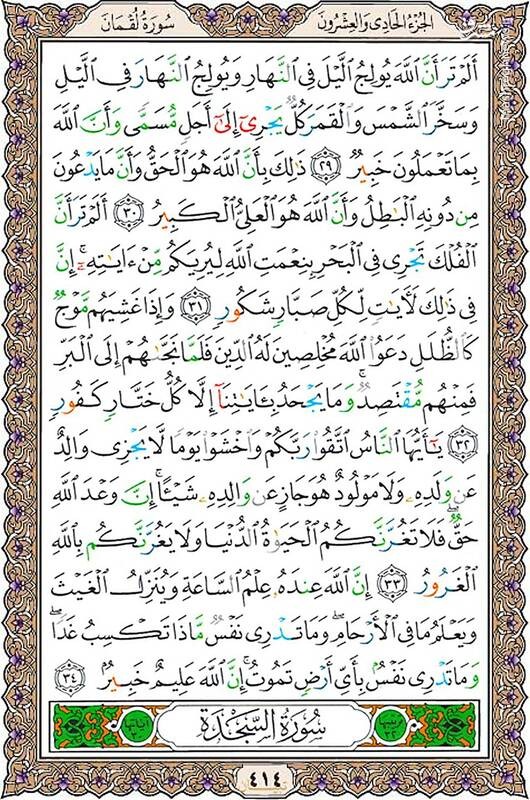 الجزء الحادي والعشرون
سورة لقمان
أَلَمْ تَرَ أَنَّ ٱللَّهَ يُولِجُ ٱلَّيْلَ فِى ٱلنَّهَارِ وَيُولِجُ ٱلنَّهَارَ فِى ٱلَّيْلِ
وَسَخَّرَ ٱلشَّمْسَ وَٱلْقَمَرَ كُلٌّ يَجْرِىٓ إِلَىٰٓ أَجَلٍ مُّسَمًّى وَأَنَّ ٱللَّهَ
بِمَا تَعْمَلُونَ خَبِيرٌ ٢٩ ذَٰلِكَ بِأَنَّ ٱللَّهَ هُوَ ٱلْحَقُّ وَأَنَّ مَا يَدْعُونَ
مِن دُونِهِ ٱلْبَٰطِلُ وَأَنَّ ٱللَّهَ هُوَ ٱلْعَلِىُّ ٱلْكَبِيرُ ٣٠ أَلَمْ تَرَ أَنَّ
ٱلْفُلْكَ تَجْرِى فِى ٱلْبَحْرِ بِنِعْمَتِ ٱللَّهِ لِيُرِيَكُم مِّنْ ءَايَٰتِهِۦٓ ۚ إِنَّ
فِى ذَٰلِكَ لَءَايَٰتٍ لِّكُلِّ صَبَّارٍ شَكُورٍ ٣١ وَإِذَا غَشِيَهُم مَّوْجٌ
كَٱلظُّلَلِ دَعَوُا۟ ٱللَّهَ مُخْلِصِينَ لَهُ ٱلدِّينَ فَلَمَّا نَجَّىٰهُمْ إِلَى ٱلْبَرِّ
فَمِنْهُم مُّقْتَصِدٌ ۚ وَمَا يَجْحَدُ بِـَٔايَٰتِنَآ إِلَّا كُلُّ خَتَّارٍ كَفُورٍ
٣٢ يَٰٓأَيُّهَا ٱلنَّاسُ ٱتَّقُوا۟ رَبَّكُمْ وَٱخْشَوْا۟ يَوْمًا لَّا يَجْزِى وَالِدٌ
عَن وَلَدِهِۦ وَلَا مَوْلُودٌ هُوَ جَازٍ عَن وَالِدِهِۦ شَيْـًٔا ۚ إِنَّ وَعْدَ ٱللَّهِ
حَقٌّ ۖ فَلَا تَغُرَّنَّكُمُ ٱلْحَيَوٰةُ ٱلدُّنْيَا وَلَا يَغُرَّنَّكُم بِٱللَّهِ
ٱلْغَرُورُ ٣٣ إِنَّ ٱللَّهَ عِندَهُۥ عِلْمُ ٱلسَّاعَةِ وَيُنَزِّلُ ٱلْغَيْثَ
وَيَعْلَمُ مَا فِى ٱلْأَرْحَامِ ۖ وَمَا تَدْرِى نَفْسٌ مَّاذَا تَكْسِبُ غَدًا ۖ
وَمَا تَدْرِى نَفْسٌۢ بِأَىِّ أَرْضٍ تَمُوتُ ۚ إِنَّ ٱللَّهَ عَلِيمٌ خَبِيرٌۢ ٣٤
ترتيبها ٣٢ سورة السجدة آياتها ٣٠
٤١٤